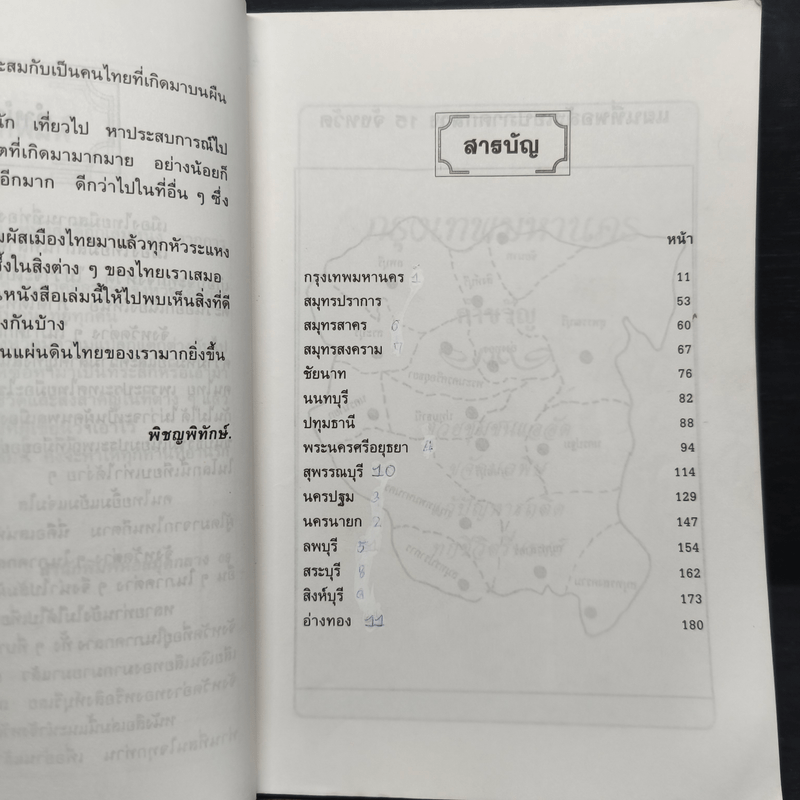 ะสมกับเป็นคนไทยที่เกิดมาบนผืน
นัก เที่ยวไป หาประสบการณ์ไป
ตที่เกิดมามากมาย อย่างน้อยก็
อีกมาก ดีกว่าไปในที่อื่น ๆ ซึ่ง
มผัสเมืองไทยมาแล้วทุกหัวระแหง
ซึ้งในสิ่งต่าง ๆ ของไทยเราเสมอ
นหนังสือเล่มนี้ให้ไปพบเห็นสิ่งที่ดี
งกันบ้าง
นแผ่นดินไทยของเรามากยิ่งขึ้น
พิชญพิทักษ์.
สารบัญ
หน้า
กรุงเทพมหานคร 1 11
สมุทรปราการ 53
สมุทรสาคร 6 60
สมุทรสงคราม 7 67
ชัยนาท 76
นนทบุรี 82
ปทุมธานี 88
พระนครศรีอยุธยา 4 94
สุพรรณบุรี 10 114
นครปฐม 3 129
นครนายก 2 147
ลพบุรี 5 154
สระบุรี 8 162
สิงห์บุรี 9 173
อ่างทอง 11 180